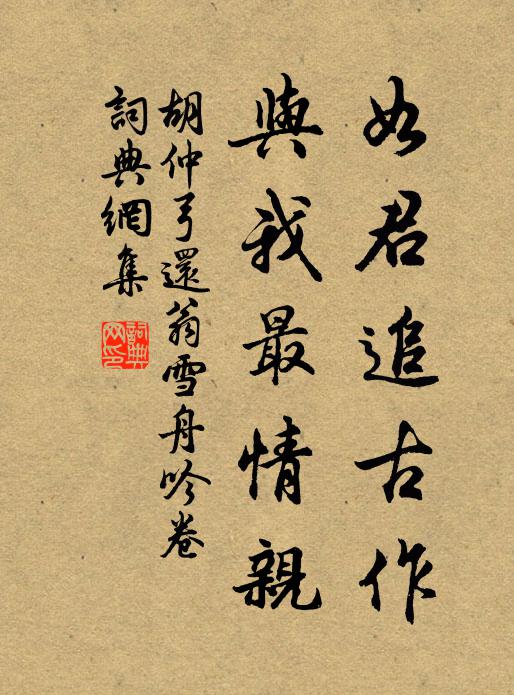 如君追古作
與我最情親
胡仲弓還翁雪舟吟卷
詞典網集
詞典
网印